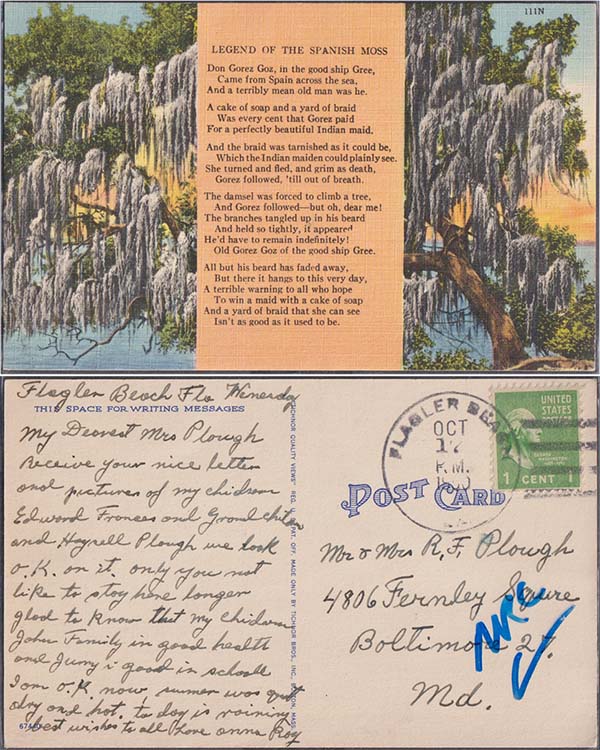 111N
LEGEND OF THE SPANISH MOSS
Don Gorez Goz, in the good ship Gree,
Came from Spain across the sea,
And a terribly mean old man was he.
A cake of soap and a yard of braid
Was every cent that Gorez paid
For a perfectly beautiful Indian maid.
And the braid was tarnished as it could be,
Which the Indian maiden could plainly see.
She turned and fled, and grim as death,
Gorez followed, 'till out of breath.
The damsel was forced to climb a tree,
And Gorez followed—but oh, dear me!
The branches tangled up in his beard
And held so tightly, it appeared
He'd have to remain indefinitely!
Old Gorez Goz of the good ship Gree.
All but his beard has faded away,
But there it hangs to this very day,
A terrible warning to all who hope
To win a maid with a cake of soap
And a yard of braid that she can see
Isn't as good as it used to be.
Flagler Beach Fla Wenesday
THIS SPACE FOR WRITING MESSAGES
My Dearest Mrs Plough
Receive your nice letter
and pictures of my chidren
Edward Frances and Grand
and Plough we look
O.K. on it. only you not
like to stay here longer
glad to know that my chidren
John Family in good health
and Jimy i good in schoole
I am O.K. now, sumer was
dry and hot. to day is raining
best wishes to all Love anna Roy
QUALITY VIEWS" REG. U. S. PAT. OFF. MADE ONLY BY TICHNOR BROS., INC., BOSTON, MASS.
FLAGLER BEACH
OCT
12
P.M.
UNITED
STATES
1 CENT 1
POST CARD
Mr & Mrs R. F. Plough
4806 Fernley Squre
Boltimore 27.
Md.